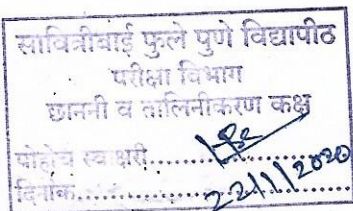 सावित्रीबाई फुले पुणे विद्यापीठ
परीक्षा विभाग
छाननी व तालिनीकरण कक्ष
पोहोच स्वाक्षरी..................
दिनांक.................. 22/1/2020